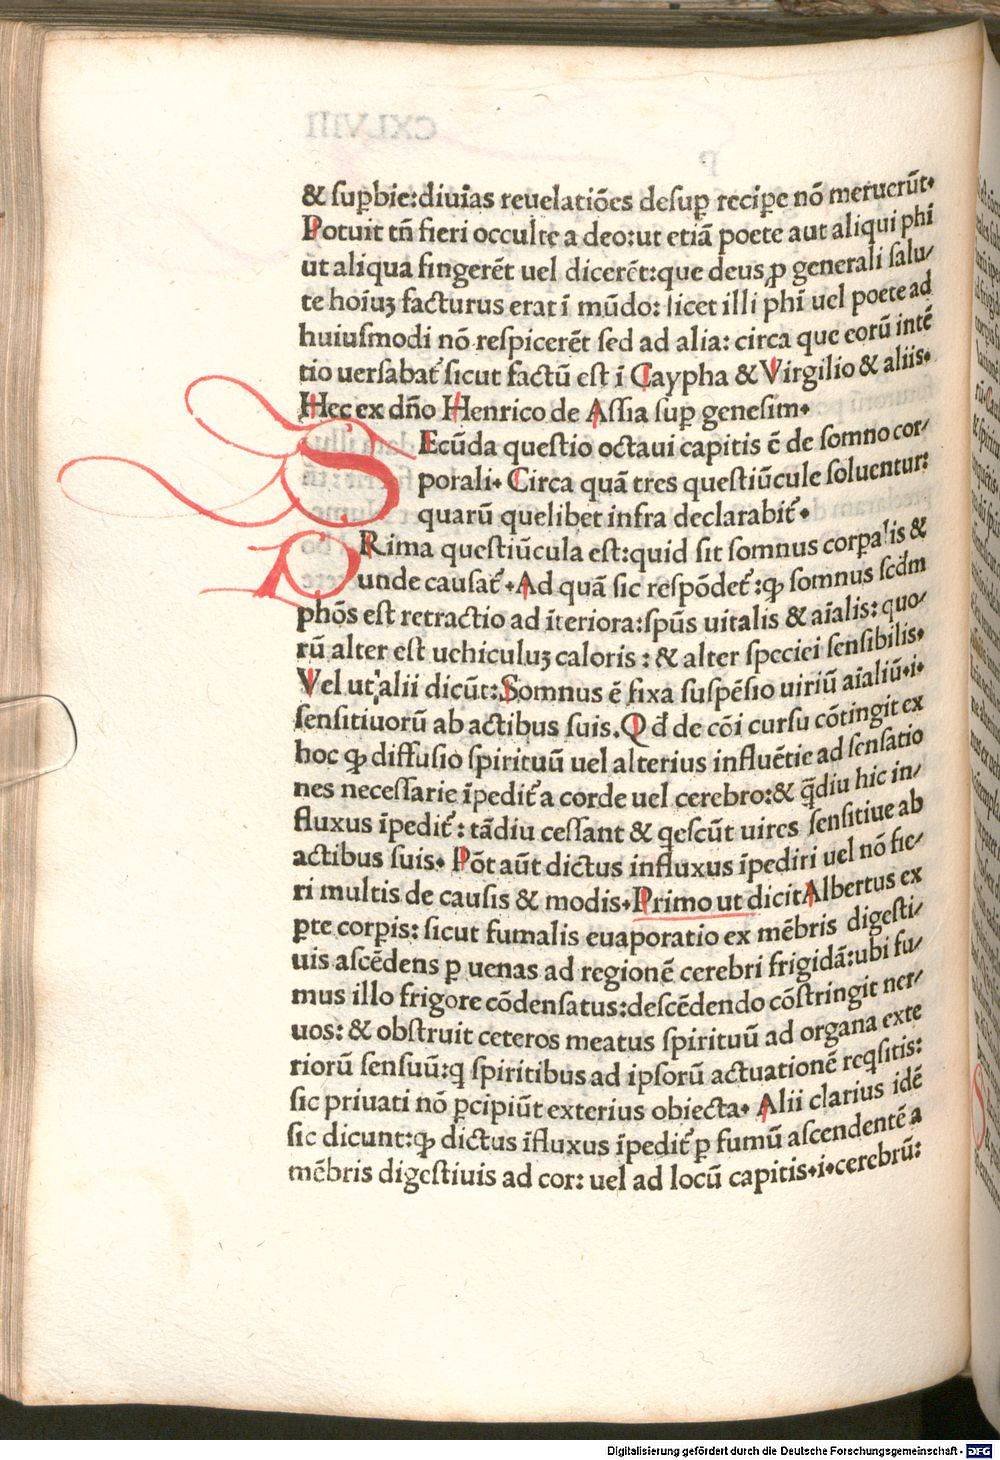 & sup̱bie:diuīas reuelatiōes desup̱ recip̱e nō meruerūt.
Potuit tn̄ fieri occulte a deo:ut etiā poete aut aliqui phi
ut aliqua fingerēt uel dicerēt:que deus p̱ generali salu/
te hoīuꝫ facturus erat ī mūdo: licet illi phī uel poete ad
huiusmodi nō respicerēt sed ad alia: circa que eorū intē
tio uersabat᷑ sicut factū est ī Caypha & Virgilio & aliis.
Hec ex dn̄o Henrico de Assia sup̱ genesim.
SEcūda questio octaui capitis ē de somno cor/
porali. Circa quā tres questiūcule soluentur:
quarū quelibet infra declarabit᷑.
PRima questiūcula est:quid sit somnus corp̱alis &
unde causat᷑. Ad quā sic respōdet᷑: ꝙ somnus scd̄m
phōs est retractio ad īteriora:spūs uitalis & aīalis: quo/
rū alter est uehiculuꝫ caloris : & alter speciei sensibilis.
Vel ut alii dicūt: Somnus ē fixa suspēsio uiriū aīaliū.i.
sensitiuorū ab actibus suis. Qd̄ de cōi cursu cōtingit ex
hoc ꝙ diffusio spirituū uel alterius influētie ad sensatio
nes necessarie īpedit᷑ a corde uel cerebro:& q̄diu hic in/
fluxus īpedit᷑: tādiu cessant & qescūt uires sensitiue ab
actibus suis. Pōt aūt dictus influxus īpediri uel nō fie/
ri multis de causis & modis. Primo ut dicit Albertus ex
ꝑte corp̱is: sicut fumalis euaporatio ex mēbris digesti/
uis ascēdens ꝑ uenas ad regionē cerebri frigidā:ubi fu/
mus illo frigore cōdensatus:descēdendo cōstringit ner/
uos: & obstruit ceteros meatus spirituū ad organa exte
riorū sensuū:q spiritibus ad ipsorū actuationē reqsitis:
sic priuati nō ꝑcipiūt exterius obiecta. Alii clarius idē
sic dicunt:ꝙ dictus īfluxus īpedit᷑ ꝑ fumū ascendentē a
mēbris digestiuis ad cor: uel ad locū capitis.i.cerebrū:
Digitalisierung gefördert durch die Deutsche Forschungsgemeinschaft - DFG